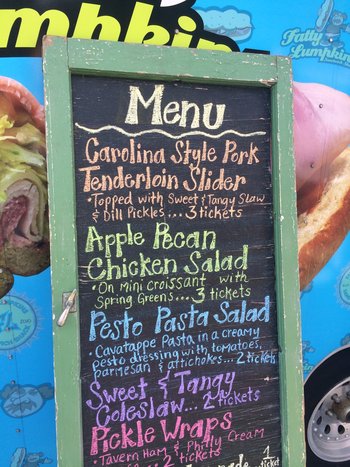 Fatty
Lumpkin
Menu
Carolina Style Pork
Tenderloin Slider
• Topped with Sweet & Tangy Slaw
& Dill Pickles... 3 tickets
Apple Pecan
Chicken Salad
• On mini croissant with
Spring Greens... 3 tickets
Pesto Pasta Salad
• Cavatappe Pasta in a creamy
pesto dressing with tomatoes,
parmesan & artichokes... 2 tickets
Sweet & Tangy
Coleslaw... 2 tickets
Pickle Wraps
• Tavern Ham & Philly Cream
1
ticket